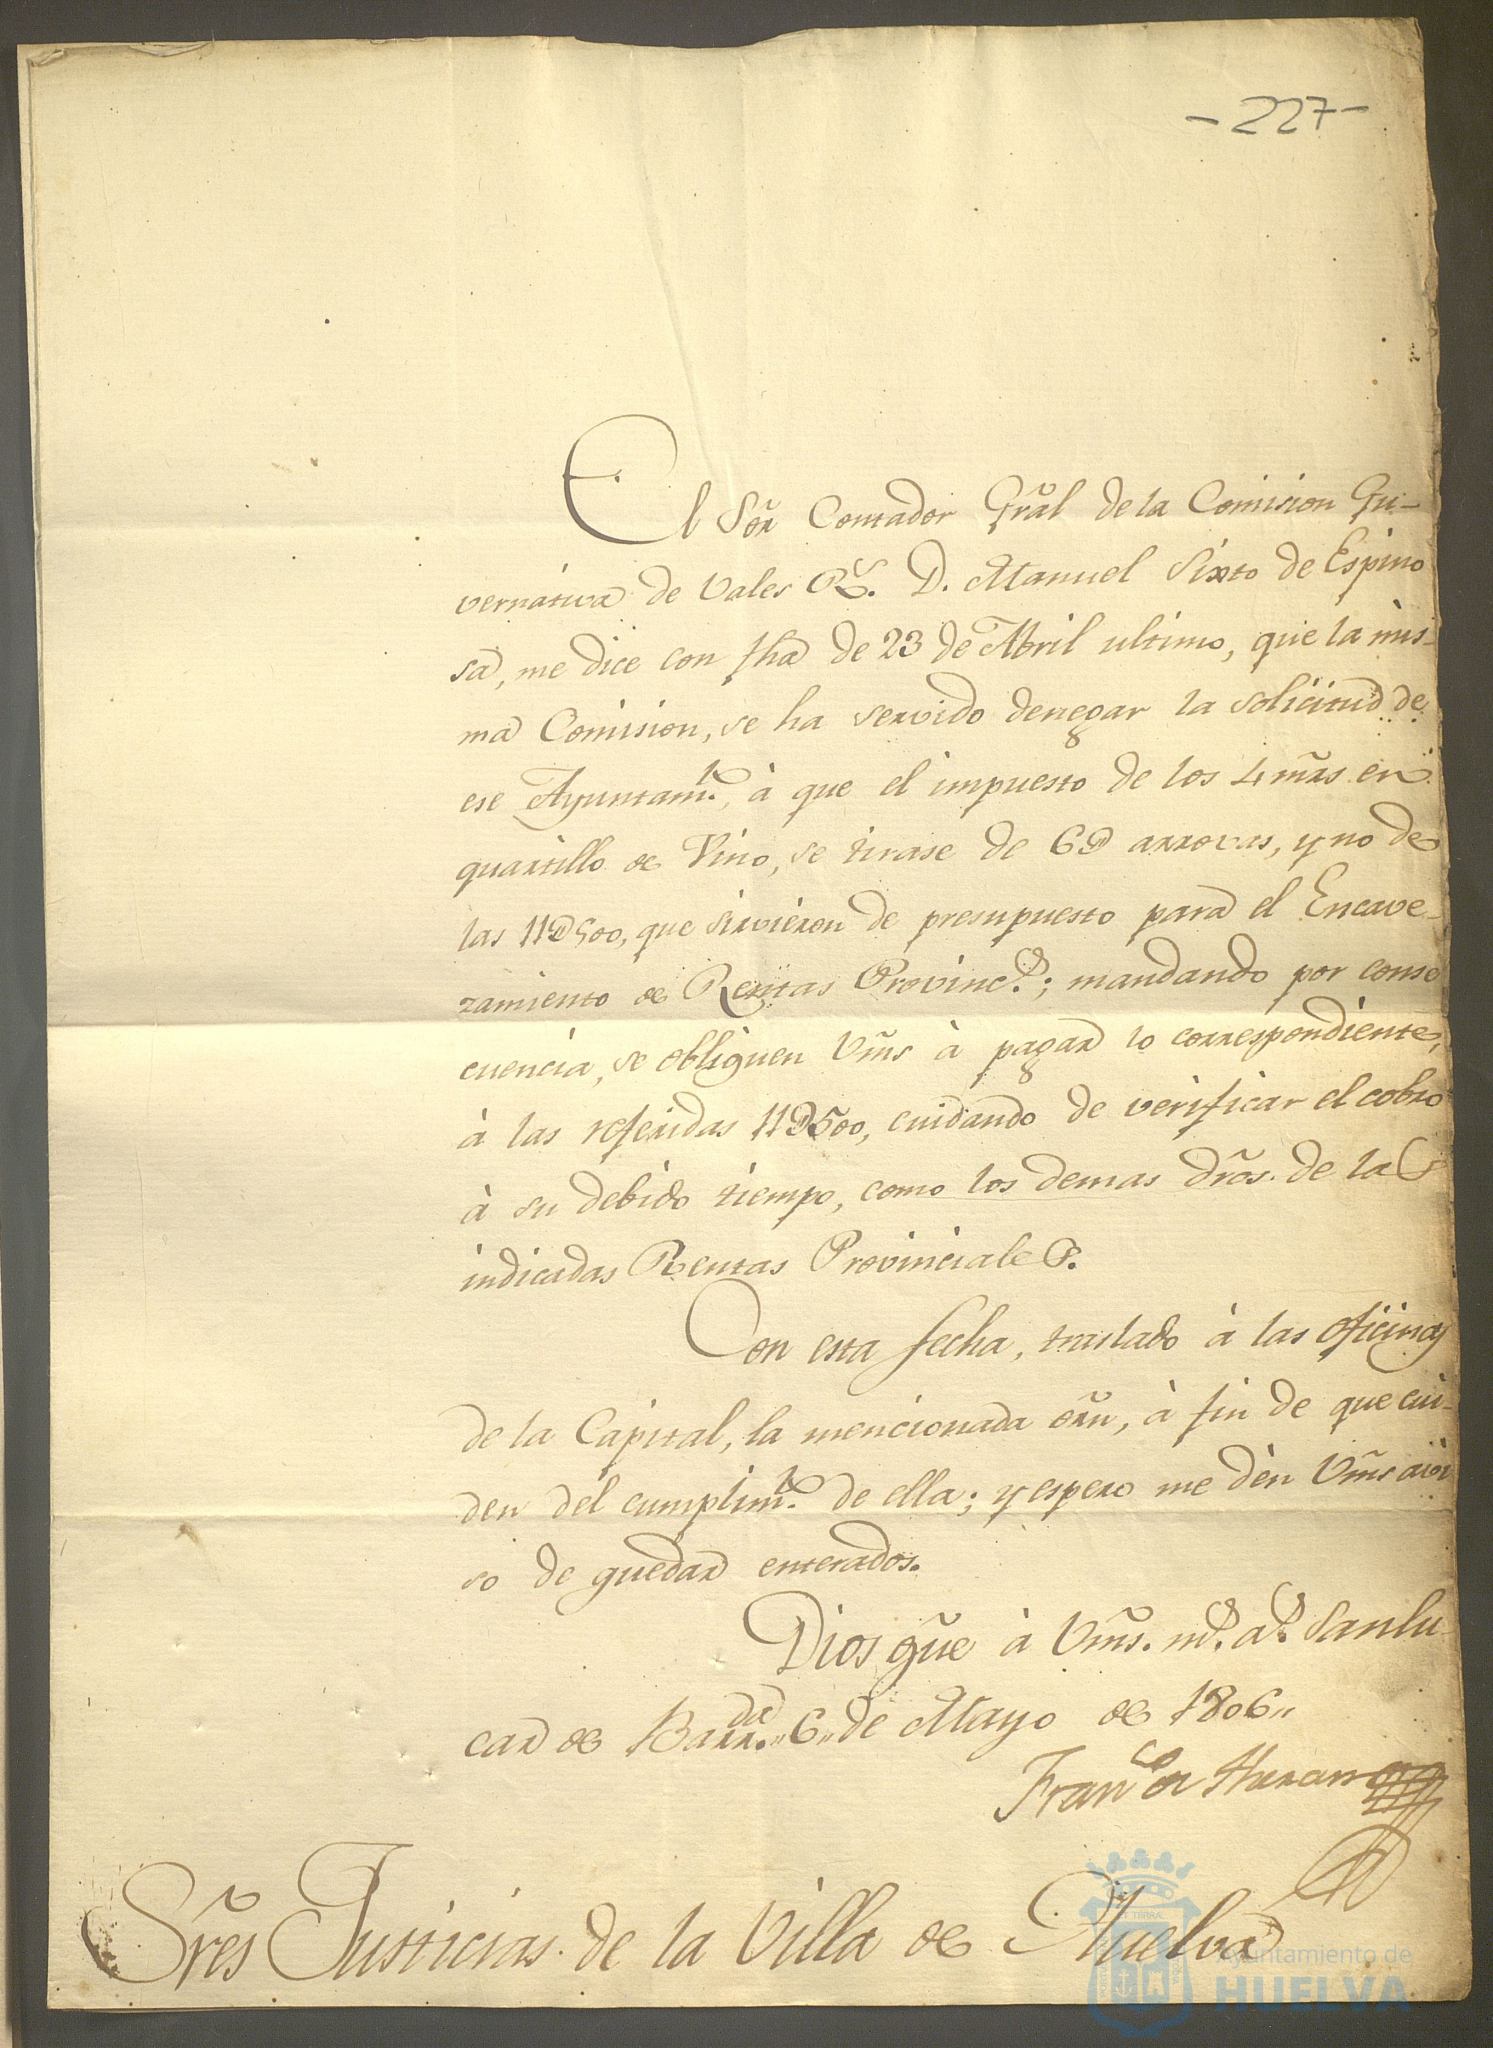 -227-
El Sõr Contador Grãl de la Comision Gu-
vernativa de Vales Rs. D. Manuel Sixto de Espino
sa, me dice con fha de 23 de Abril ultimo, que la mis-
ma Comision, se ha servido denegar la solicitud de
ese Ayuntamto., à que el impuesto de los 4 mrs̃ en
quartillo de Vino, se tirase de 6D arrovas, y no de
las 11D500, que sirvieron de presupuesto para el Encave-
zamiento de Rentas Provincs.; mandando por conse
cuencia, se obliguen Vms̃ à pagar lo correspondiente,
à las referidas 11D500, cuidando de verificar el cobro
à su debido tiempo, como los demas drõs. de las
indicadas Rentas Provinciales.
Con esta fecha, traslado à las oficinas
de la Capital, la mencionada orñ, à fin de que cui-
den del cumplimto. de ella; y espero me dèn Vms̃ avi
so de quedar enterados.
Dios gũe à Vms̃. ms. as. Sanlu-
car de Barrda. 6 de Mayo de 1806
Franco de
Sr̃es Justicias de la Villa de Huelva
Ayuntamiento de
HUELVA